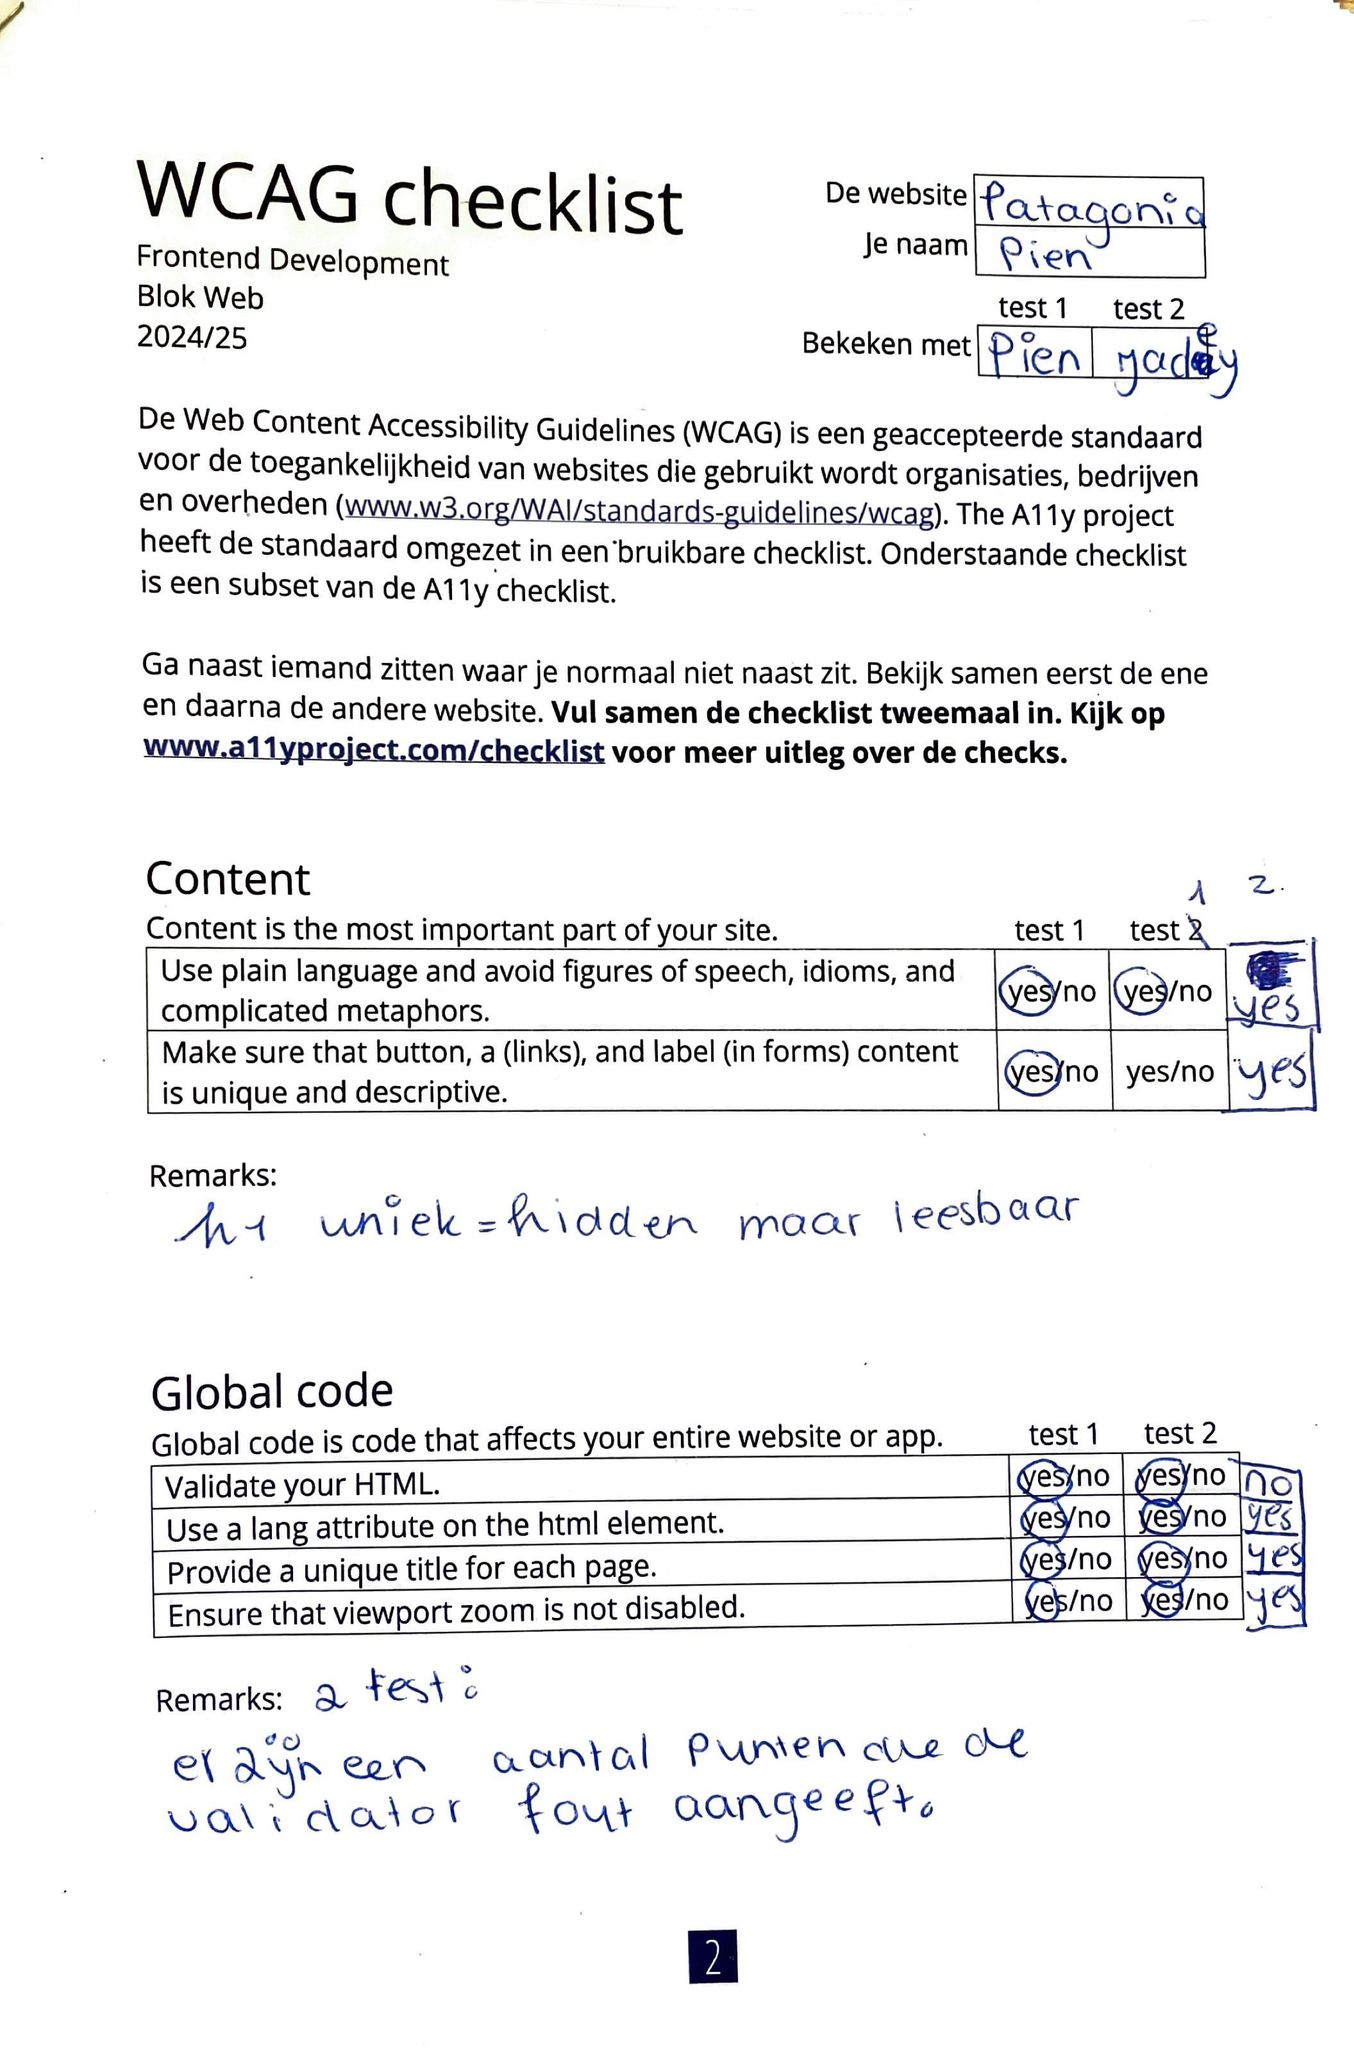 WCAG checklist
Frontend Development
Blok Web
2024/25
De website Patagonia
Je naam Pien
test 1 test 2
Bekeken met Pien
De Web Content Accessibility Guidelines (WCAG) is een geaccepteerde standaard
voor de toegankelijkheid van websites die gebruikt wordt organisaties, bedrijven
en overheden (www.w3.org/WAI/standards-guidelines/wcag). The A11y project
heeft de standaard omgezet in een bruikbare checklist. Onderstaande checklist
is een subset van de A11y checklist.
Ga naast iemand zitten waar je normaal niet naast zit. Bekijk samen eerst de ene
en daarna de andere website. Vul samen de checklist tweemaal in. Kijk op
www.a11yproject.com/checklist voor meer uitleg over de checks.
Content
1 2.
Content is the most important part of your site. test 1 test 2
Use plain language and avoid figures of speech, idioms, and
complicated metaphors. yes/no yes/no yes
Make sure that button, a (links), and label (in forms) content
is unique and descriptive. yes/no yes/no yes
Remarks:
h1 uniek = hidden maar leesbaar
Global code
Global code is code that affects your entire website or app. test 1 test 2
Validate your HTML. yes/no yes/no no
Use a lang attribute on the html element. yes/no yes/no yes
Provide a unique title for each page. yes/no yes/no yes
Ensure that viewport zoom is not disabled. yes/no yes/no yes
Remarks: 2 test:
er zijn een aantal punten die de
validator fout aangeeft.
2